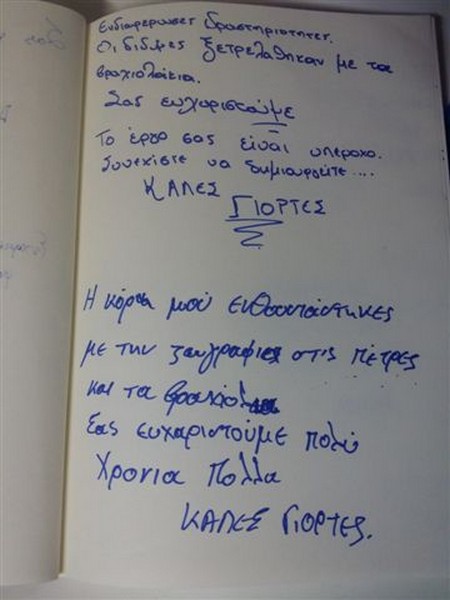 Ενδιαφερωσες δραστηριοτητες.
Οι δίδυμες ξετρελαθηκαν με τα
βραχιολακια.
Σας ευχαριστούμε
Το έργο σας είναι υπεροχο.
Συνεχίστε να δημιουργείτε ....
ΚΑΛΕΣ
ΓΙΟΡΤΕΣ
Η κόρη μου ενθουσιάστηκες
με την ζωγραφιες στις πέτρες
και τα
Σας ευχαριστούμε πολύ
Χρονια Πολλα
ΚΑΛΕΣ ΓΙΟΡΤΕΣ.